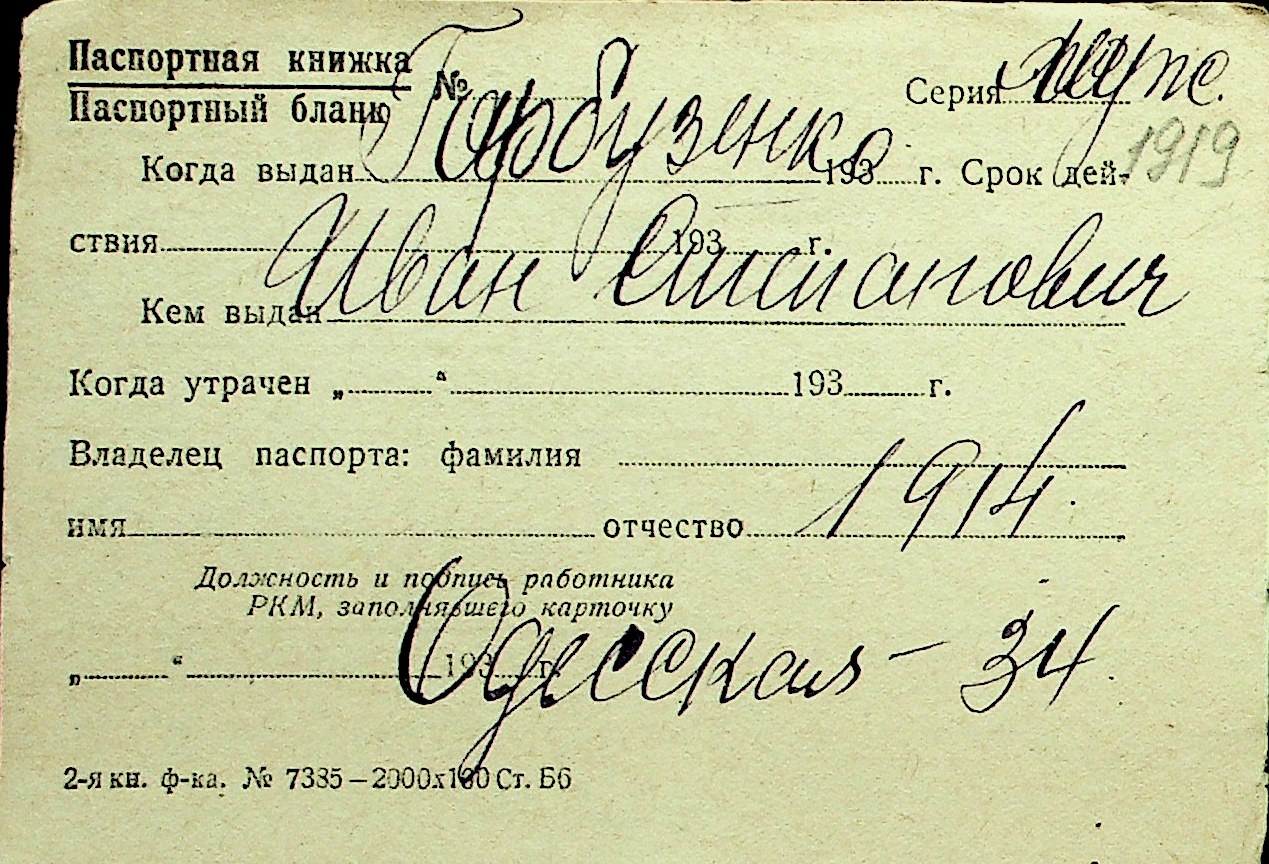 Паспортная книжка
Паспортный бланк № Серия муж.
Гарбузенко
Когда выдан 193 г. Срок дей- 1919
ствия 193 г.
Иван Степанович
Кем выдан
Когда утрачен „ “ 193 г.
Владелец паспорта: фамилия
1914
имя отчество
Должность и подпись работника
РКМ, заполнявшего карточку
„ “ 193 г.
Одесская - 34
2-я кн. ф-ка. № 7385—2000х100 Ст. Бб